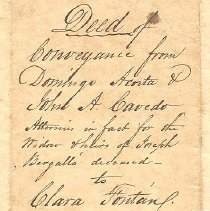 Deed of
Conveyance from
Domingo Acosta &
John A Cavedo
Attornies in fact for the
Widow & heirs of Joseph
Bergallo deceased —
to
Clara Fontané